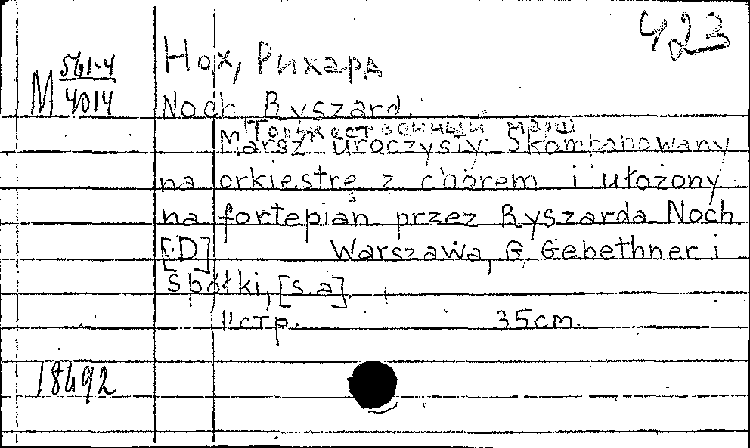 423
Нох, Рихард
М 561-4
4014
Noch Ryszard.
Торжественный марш
Marsz uroczysty. Skompanowany
na orkiestrę z chórem i ułożony
na fortepian przez Ryszarda Noch
[D] Warszawa, G. Gebethner i
spółki, [s.a].
11 стр. 35 cm.
18492